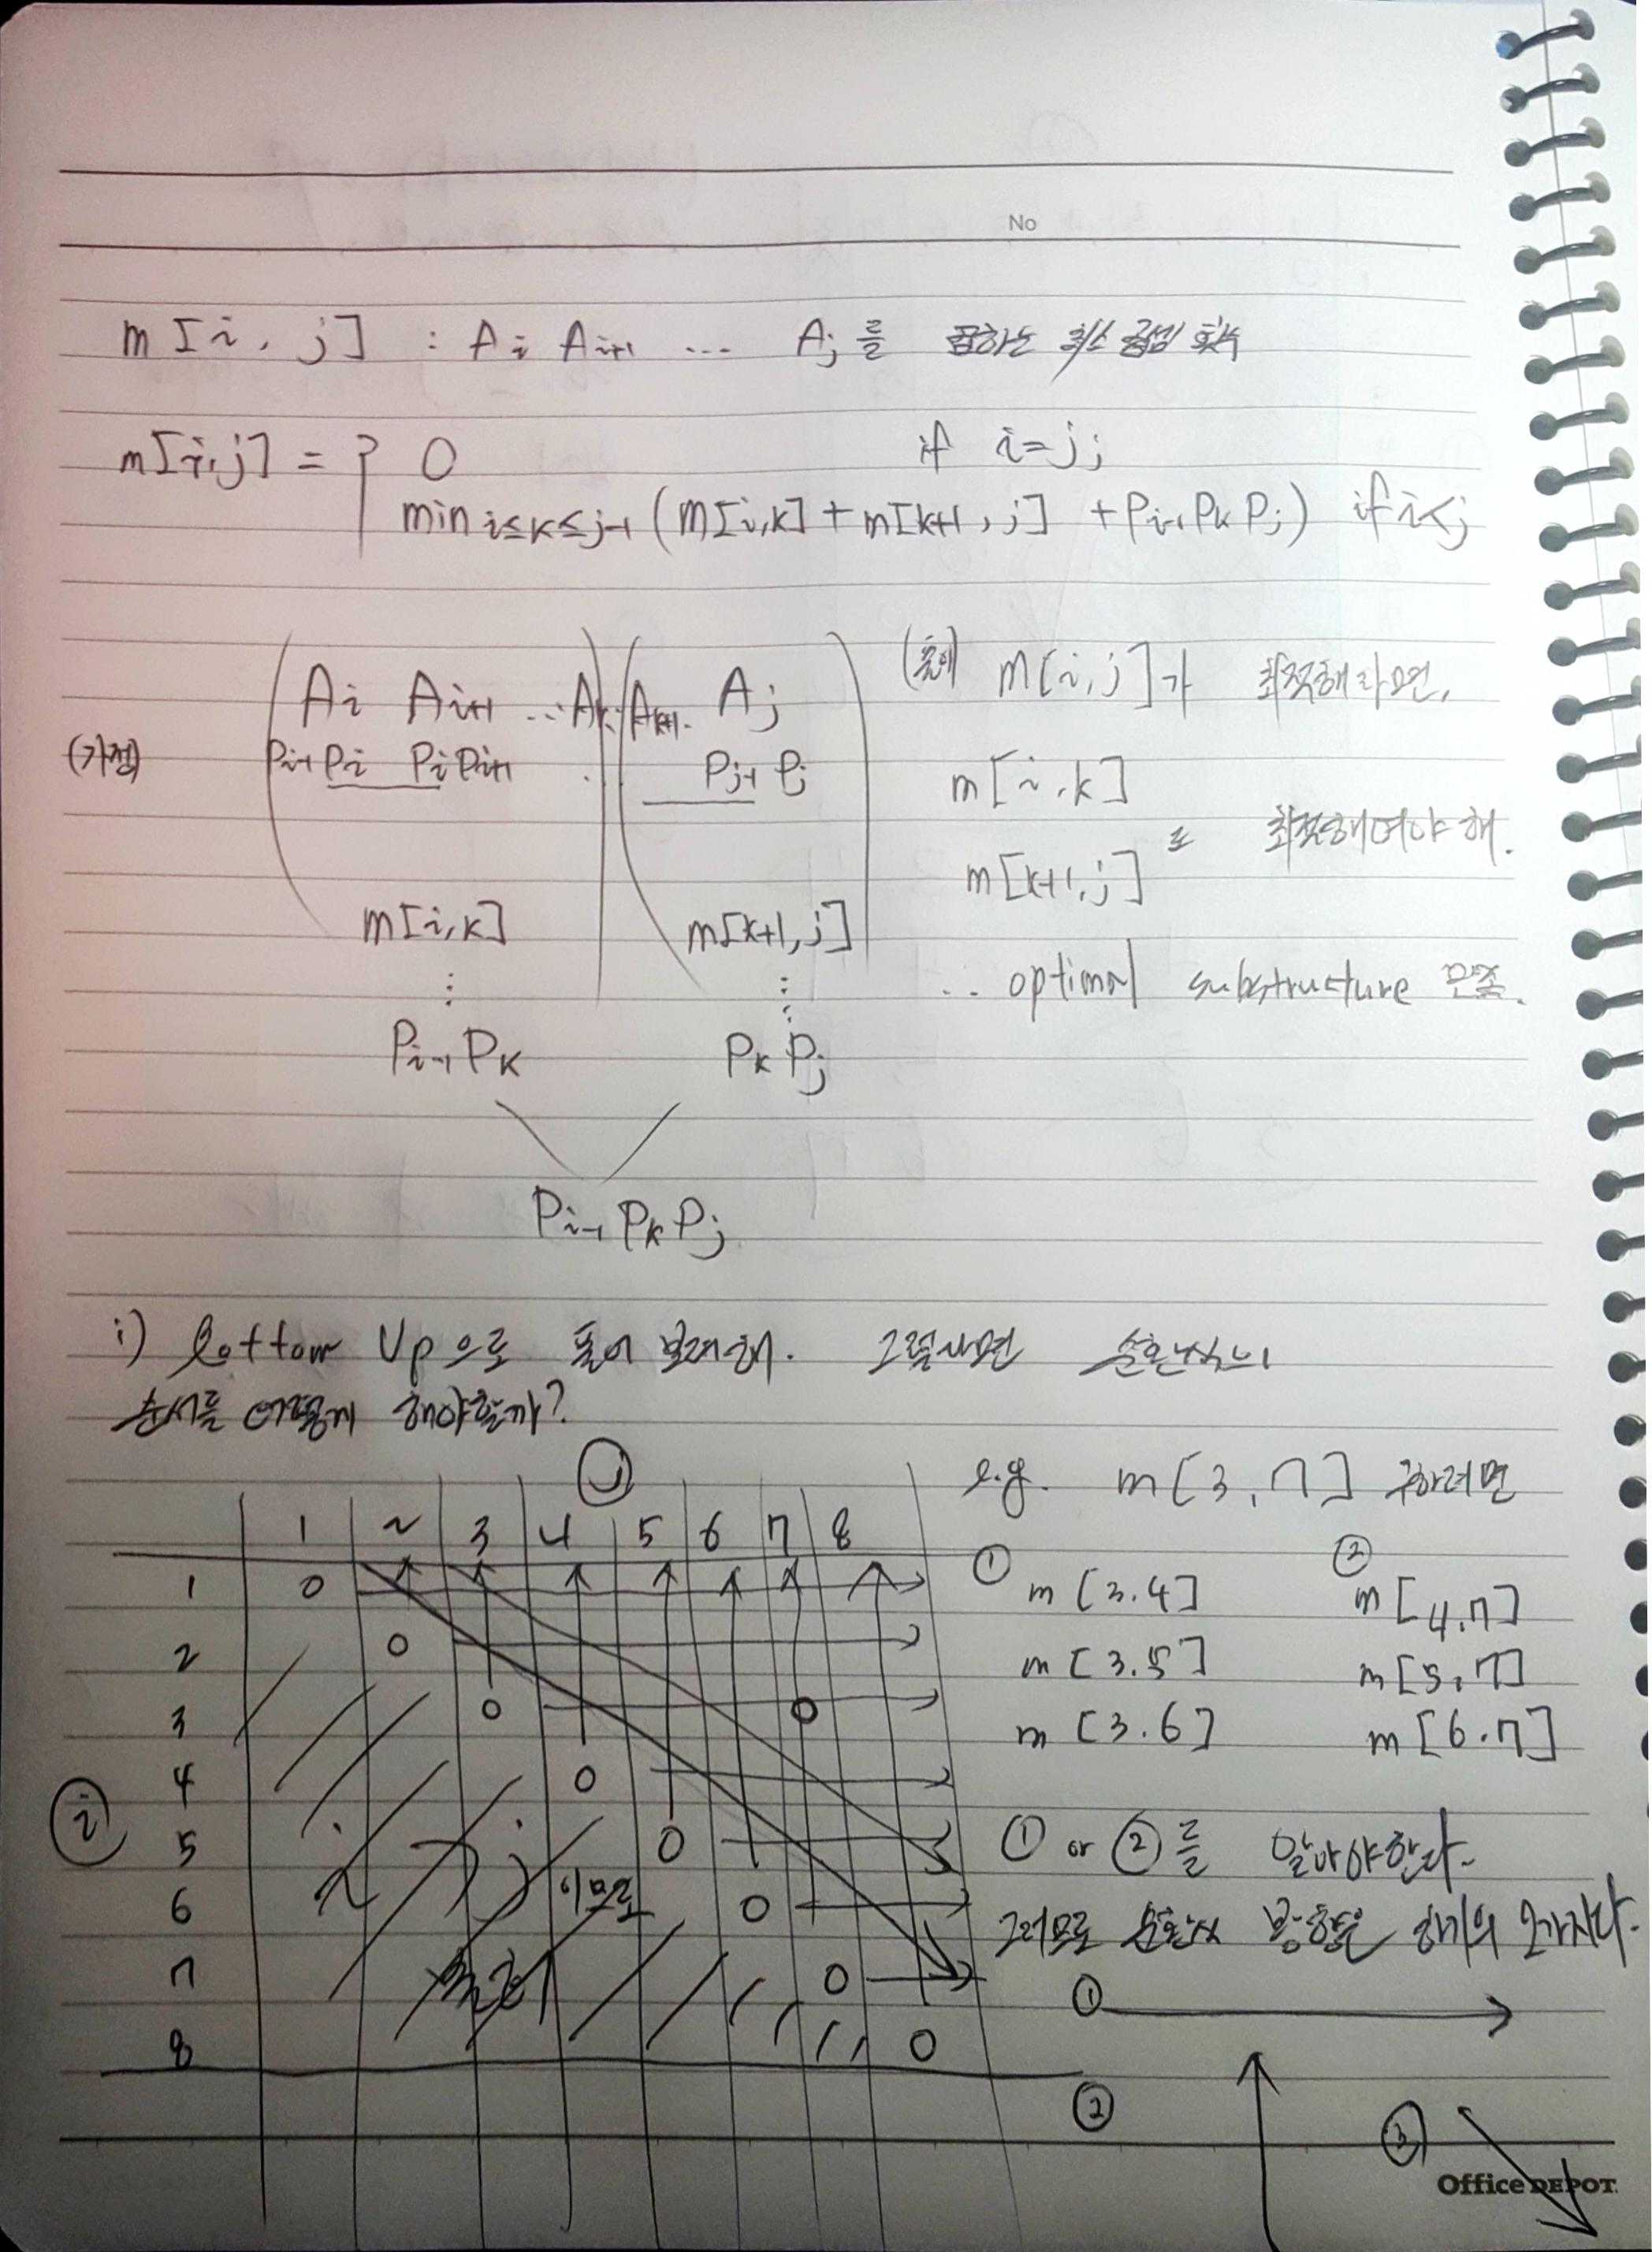 No
m[i, j] : Ai Ai+1 ... Aj를 곱하는 최소 곱셈 횟수
m[i,j] = { 0 if i=j;
min i≤k≤j-1 (m[i,k] + m[k+1, j] + Pi-1 Pk Pj) if i<j
(가정)
Ai Ai+1 ... Ak Ak+1 Aj
Pi-1 Pi Pi Pi+1 Pj-1 Pj
m[i,k] m[k+1,j]
Pi-1 Pk Pk Pj
Pi-1 Pk Pj
m[i,j]가 최적해라면,
m[i,k]
m[k+1,j] 도 최적해여야 해.
... optimal substructure 만족.
i) bottom Up으로 풀어 보려해. 그렇다면 순환식의
순서를 어떻게 해야할까?
j
1 2 3 4 5 6 7 8
1 0
2 0
3 0 0
4 0
i
5 0
6 0
7 0
8 0
i > j 이므로
e.g. m[3,7] 구하려면
① ②
m[3.4] m[4.7]
m[3.5] m[5,7]
m[3.6] m[6.7]
① or ②를 알아야한다.
그러므로 순환식 방향은 하기의 3가지다.
①
②
③
Office DEPOT